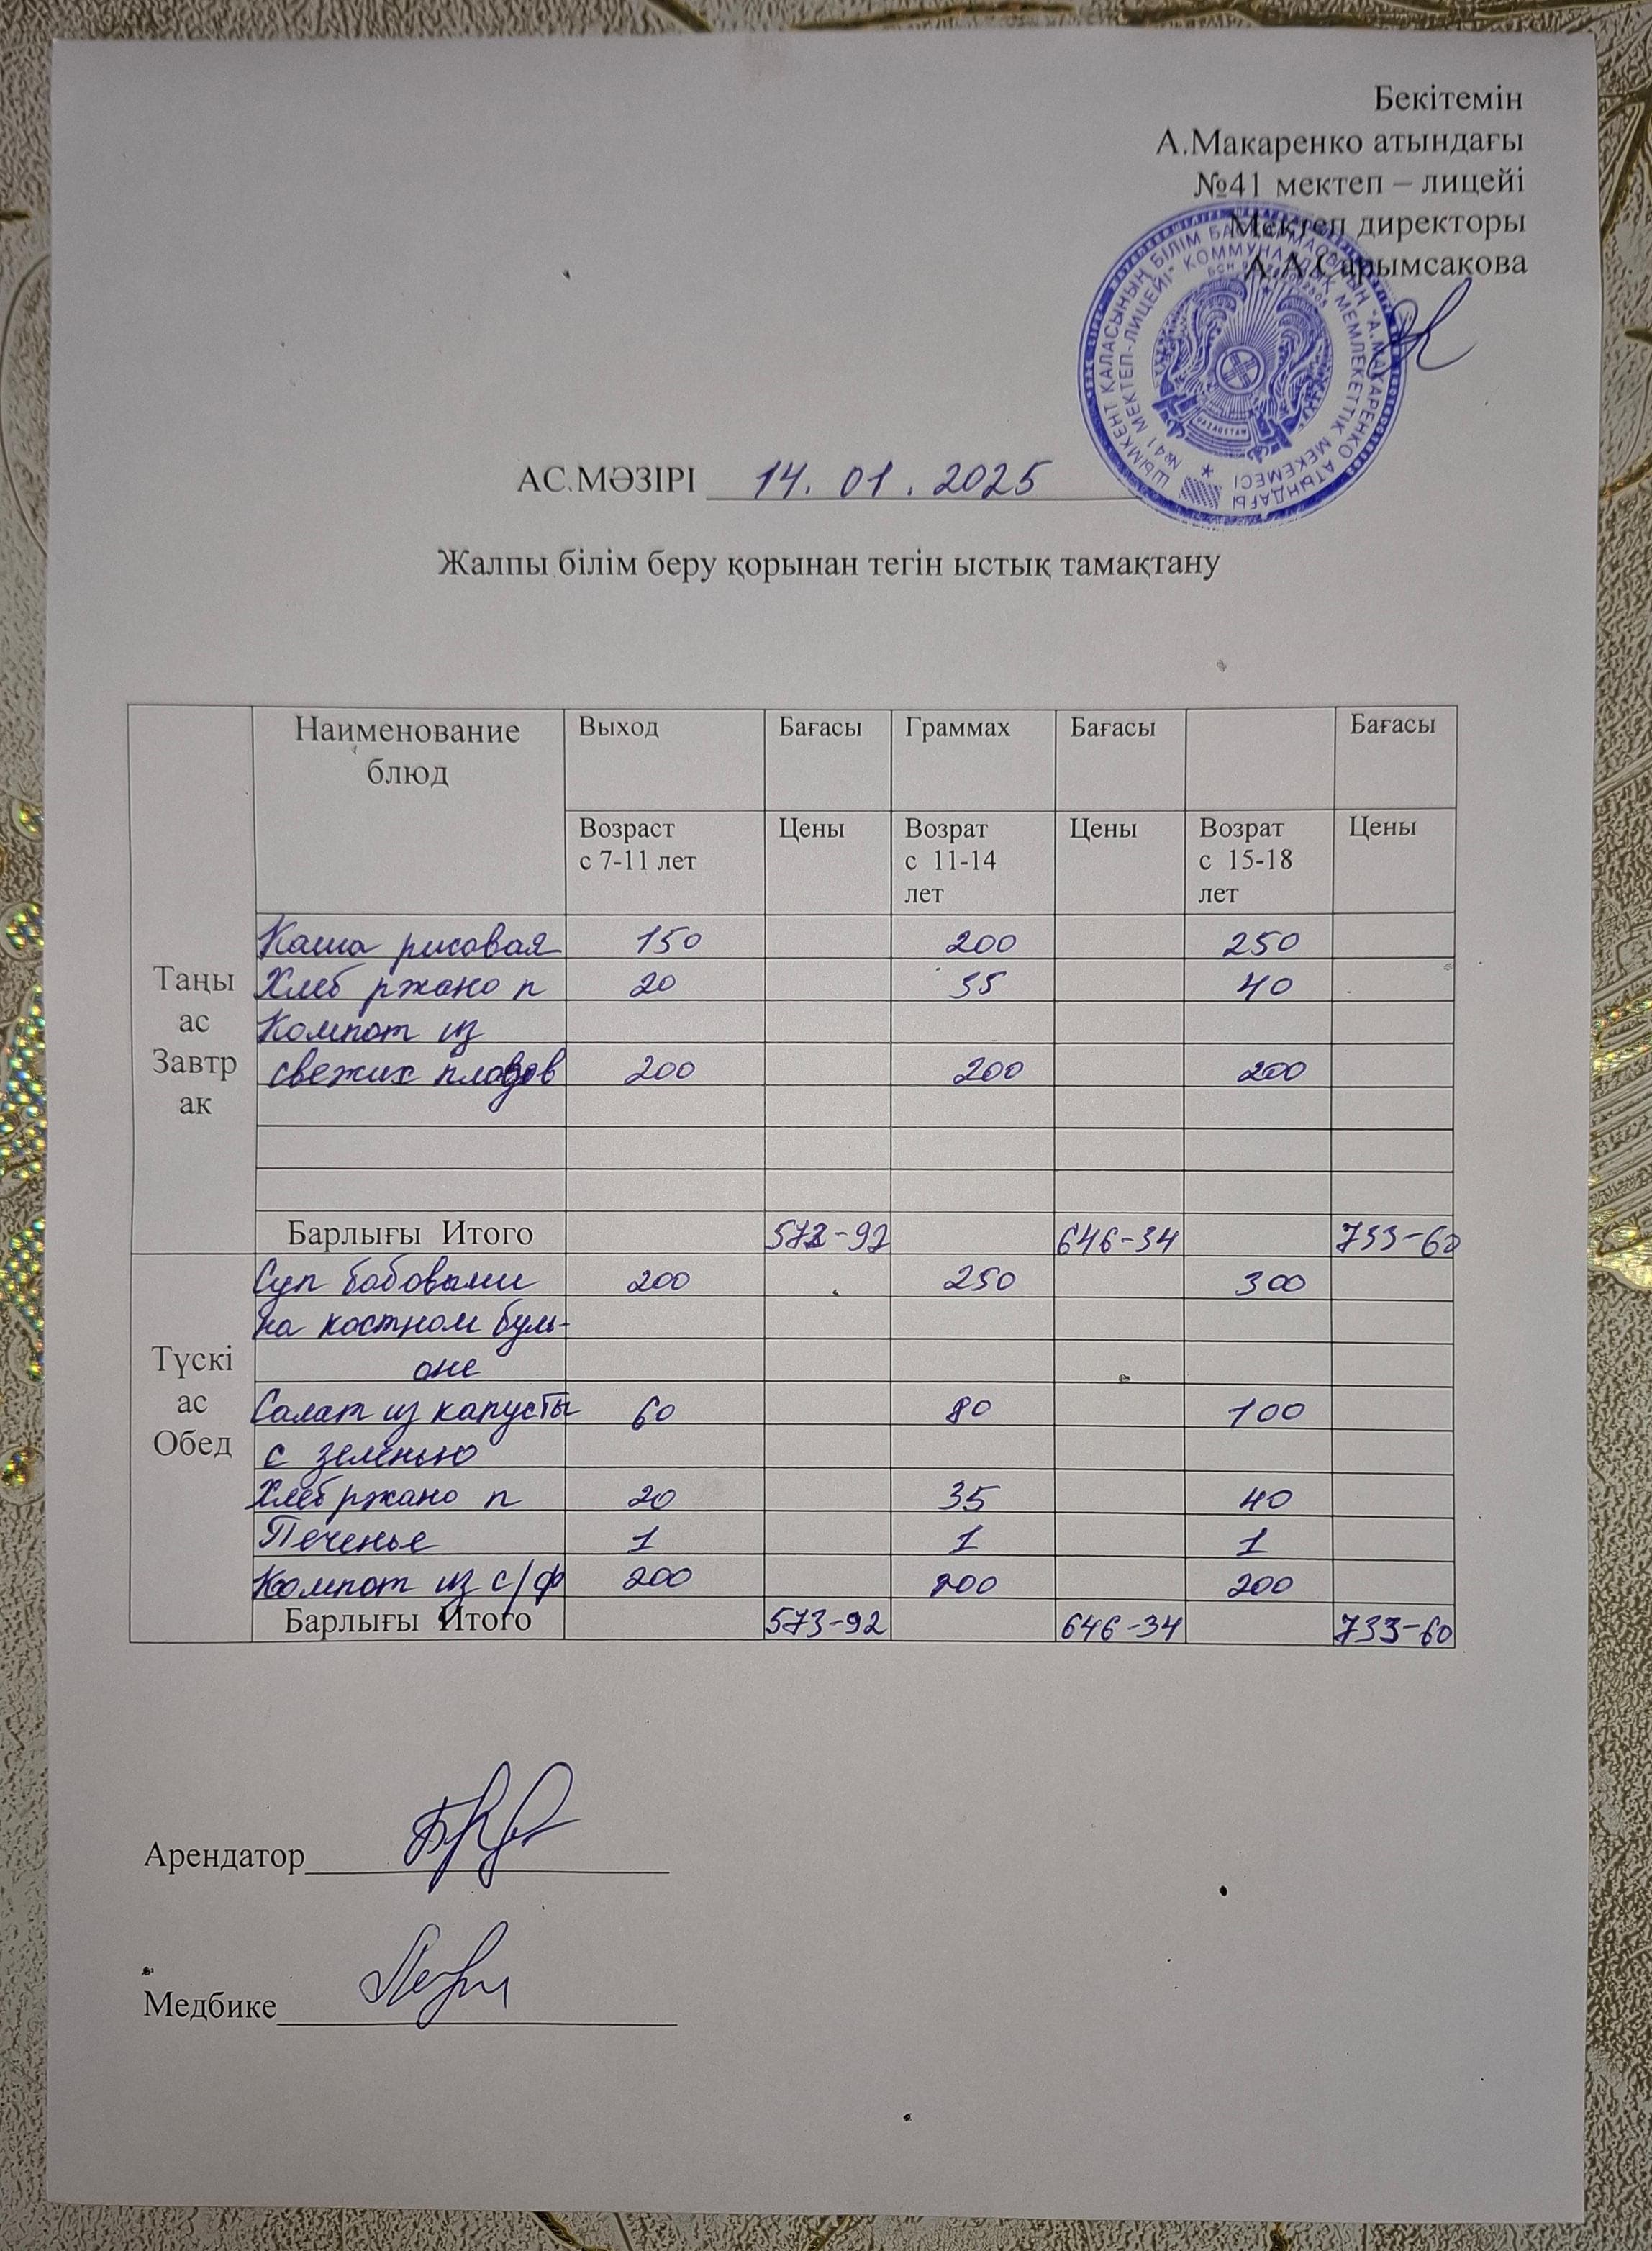 Бекітемін
А.Макаренко атындағы
№41 мектеп – лицейі
Мектеп директоры
А.А.Сарымсакова
ШЫМКЕНТ ҚАЛАСЫНЫҢ БІЛІМ БАСҚАРМАСЫНЫҢ "А.МАКАРЕНКО АТЫНДАҒЫ
№41 МЕКТЕП-ЛИЦЕЙІ" КОММУНАЛДЫҚ МЕМЛЕКЕТТІК МЕКЕМЕСІ
QAZAQSTAN
АС.МӘЗІРІ 14. 01. 2025
Жалпы білім беру қорынан тегін ыстық тамақтану
Наименование блюд Выход Бағасы Граммах Бағасы Бағасы
Возраст с 7-11 лет Цены Возрат с 11-14 лет Цены Возрат с 15-18 лет Цены
Таңы ас Завтрак
Каша рисовая 150 200 250
Хлеб ржано п 20 35 40
Компот из
свежих плодов 200 200 200
Барлығы Итого 573-92 646-34 733-60
Түскі ас Обед
Суп бобовыми 200 250 300
на костном буль-
оне
Салат из капусты 60 80 100
с зеленью
Хлеб ржано п 20 35 40
Печенье 1 1 1
Компот из с/ф 200 200 200
Барлығы Итого 573-92 646-34 733-60
Арендатор
Медбике